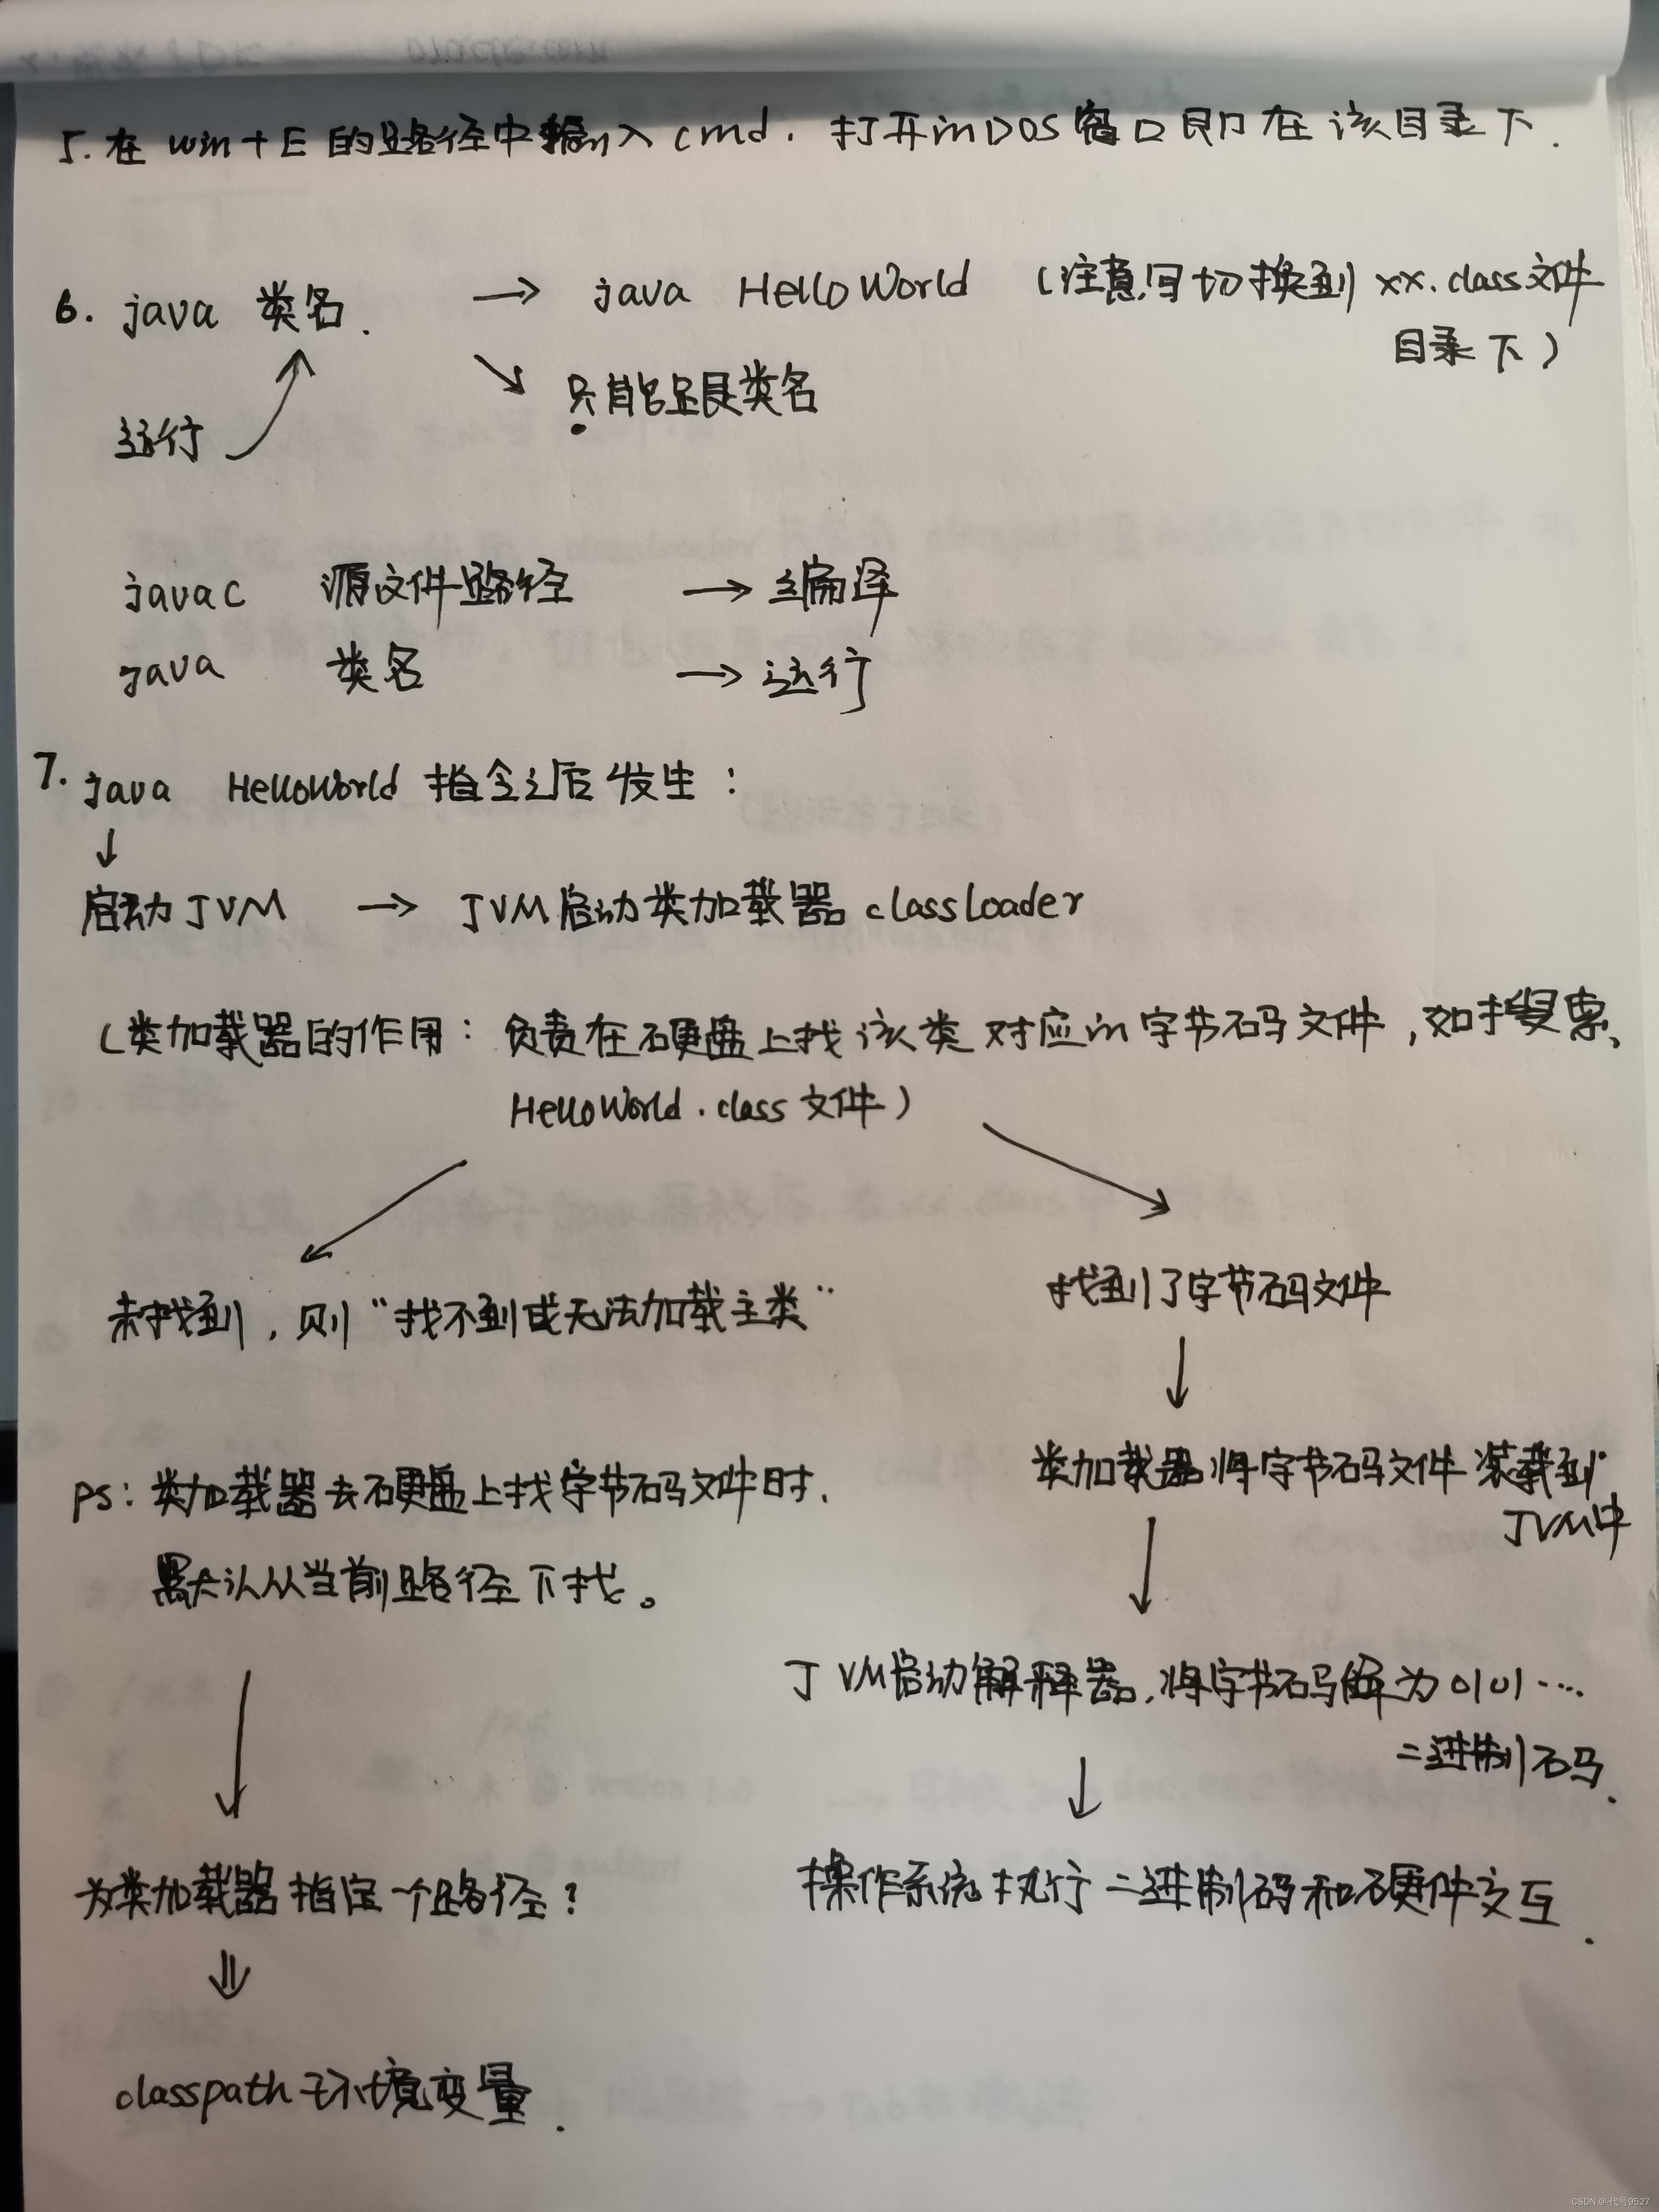 5. 在 win+E 的路径中输入 cmd. 打开的DOS窗口即在该目录下.
6. java 类名. → java HelloWorld (注意写切换到 xx.class文件
目录下)
↘ 只能是类名
运行
javac 源文件路径 → 编译
java 类名 → 运行
7. java HelloWorld 指令之后发生:
↓
启动JVM → JVM启动类加载器 classLoader
(类加载器的作用: 负责在硬盘上找该类对应的字节码文件, 如搜索、
HelloWorld.class文件)
未找到, 则"找不到或无法加载主类"
找到了字节码文件
↓
ps: 类加载器去硬盘上找字节码文件时,
默认从当前路径下找。
↓
为类加载器指定一个路径?
⇓
classpath环境变量.
类加载器将字节码文件装载到
JVM中
↓
JVM启动解释器, 将字节码解释为0101....
二进制码.
↓
操作系统执行二进制码和硬件交互.
CSDN @-代号9527